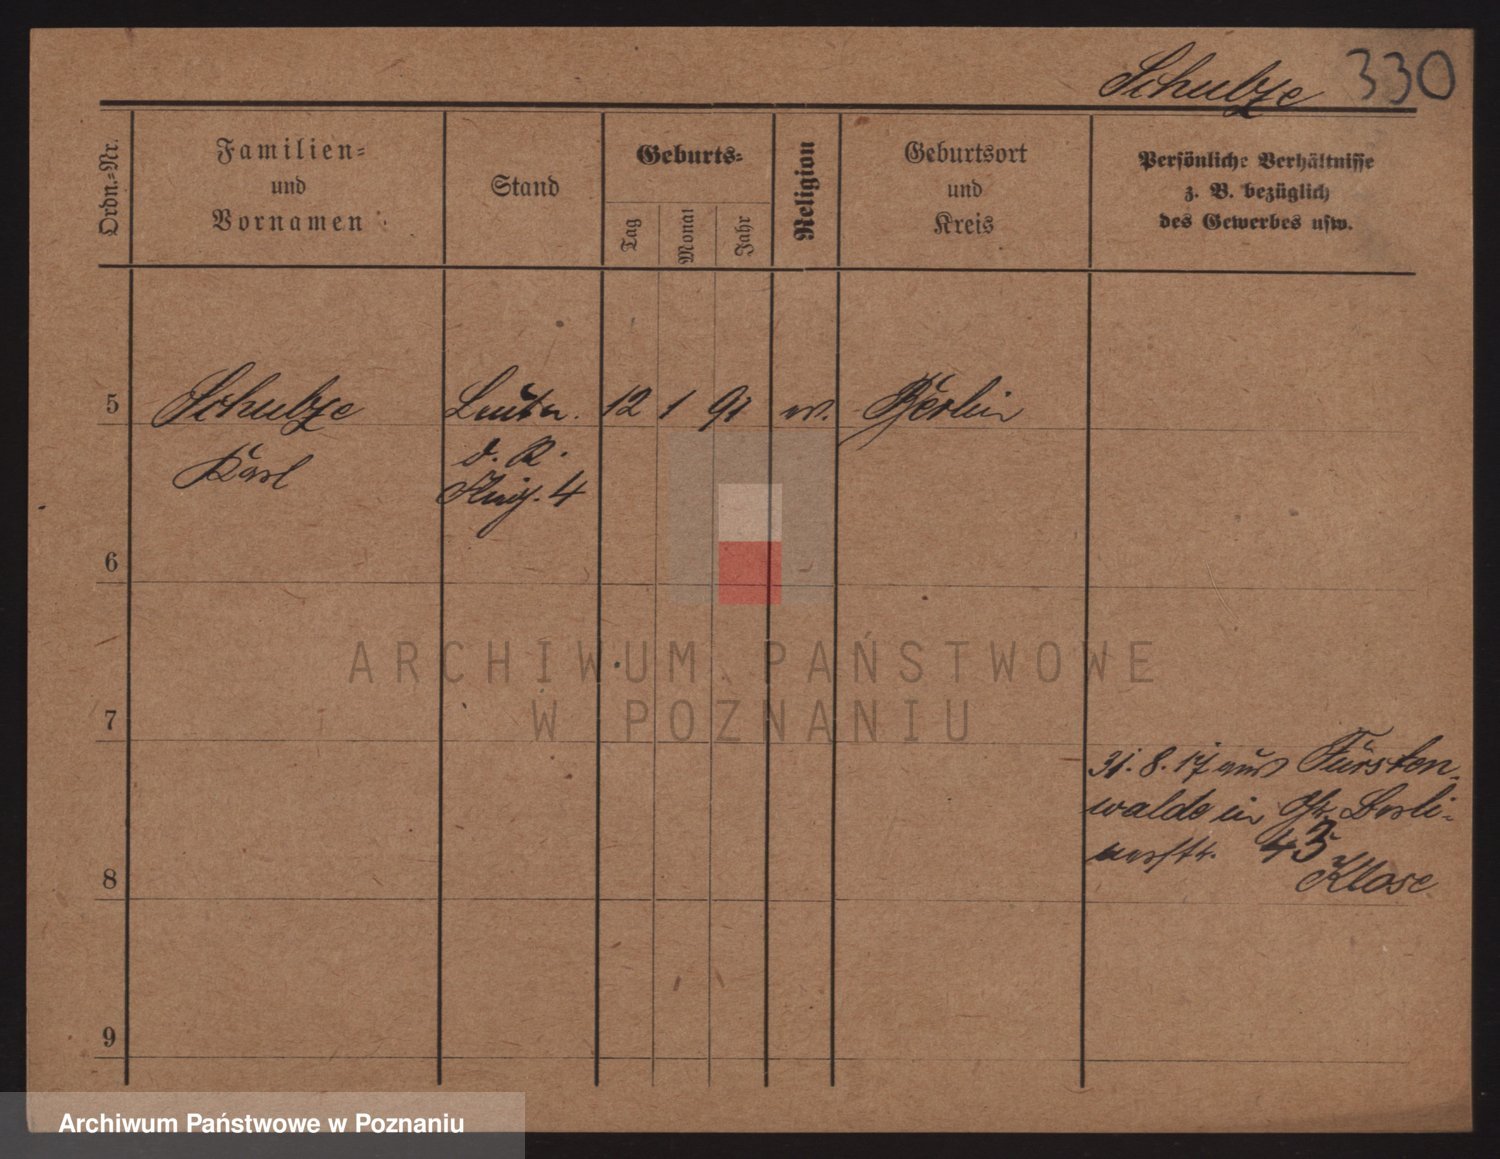 Schulze 330
Ordn.-Nr.
Familien-
und
Vornamen
Stand
Geburts-
Tag
Monat
Jahr
Religion
Geburtsort
und
Kreis
Persönliche Verhältnisse
z. B. bezüglich
des Gewerbes usw.
5 Schulze Leutn. 12 1 91 ev. Berlin
Karl d. R.
4
6
ARCHIWUM PAŃSTWOWE
W POZNANIU
7
31.8.17 aus Fürsten-
walde in Gr. Berli-
nerstr. 43
Klose
8
9
Archiwum Państwowe w Poznaniu